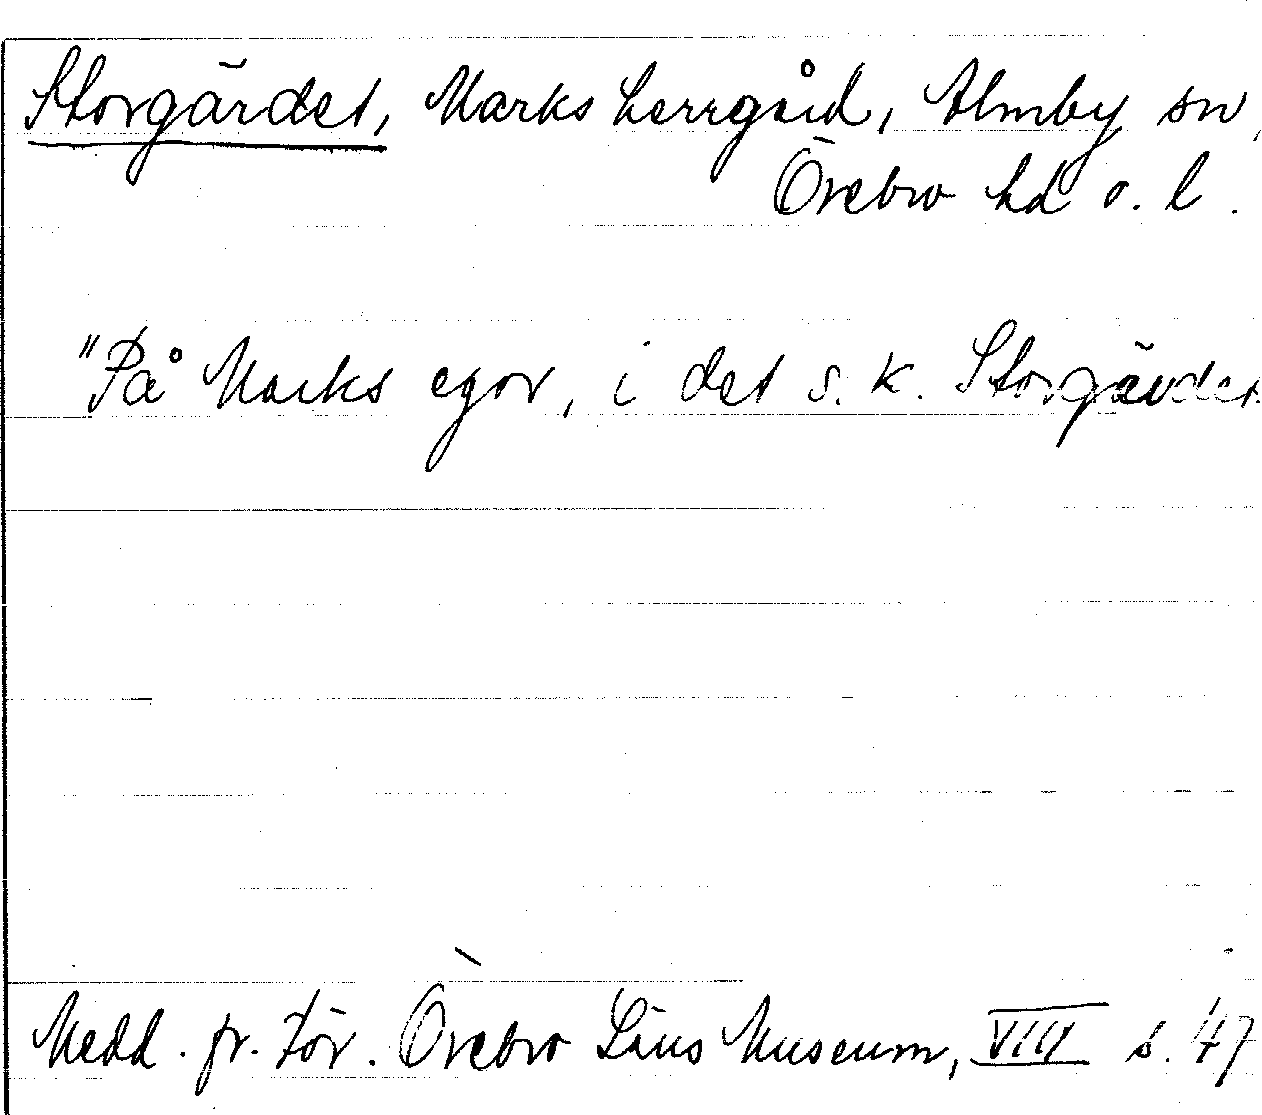 Storgärdet, Marks herrgård, Almby sn,
Örebro hd o. l.
"På Marks egor, i det s. k. Storgärdet
Medd. fr. För. Örebro Läns Museum, VIII s. 47